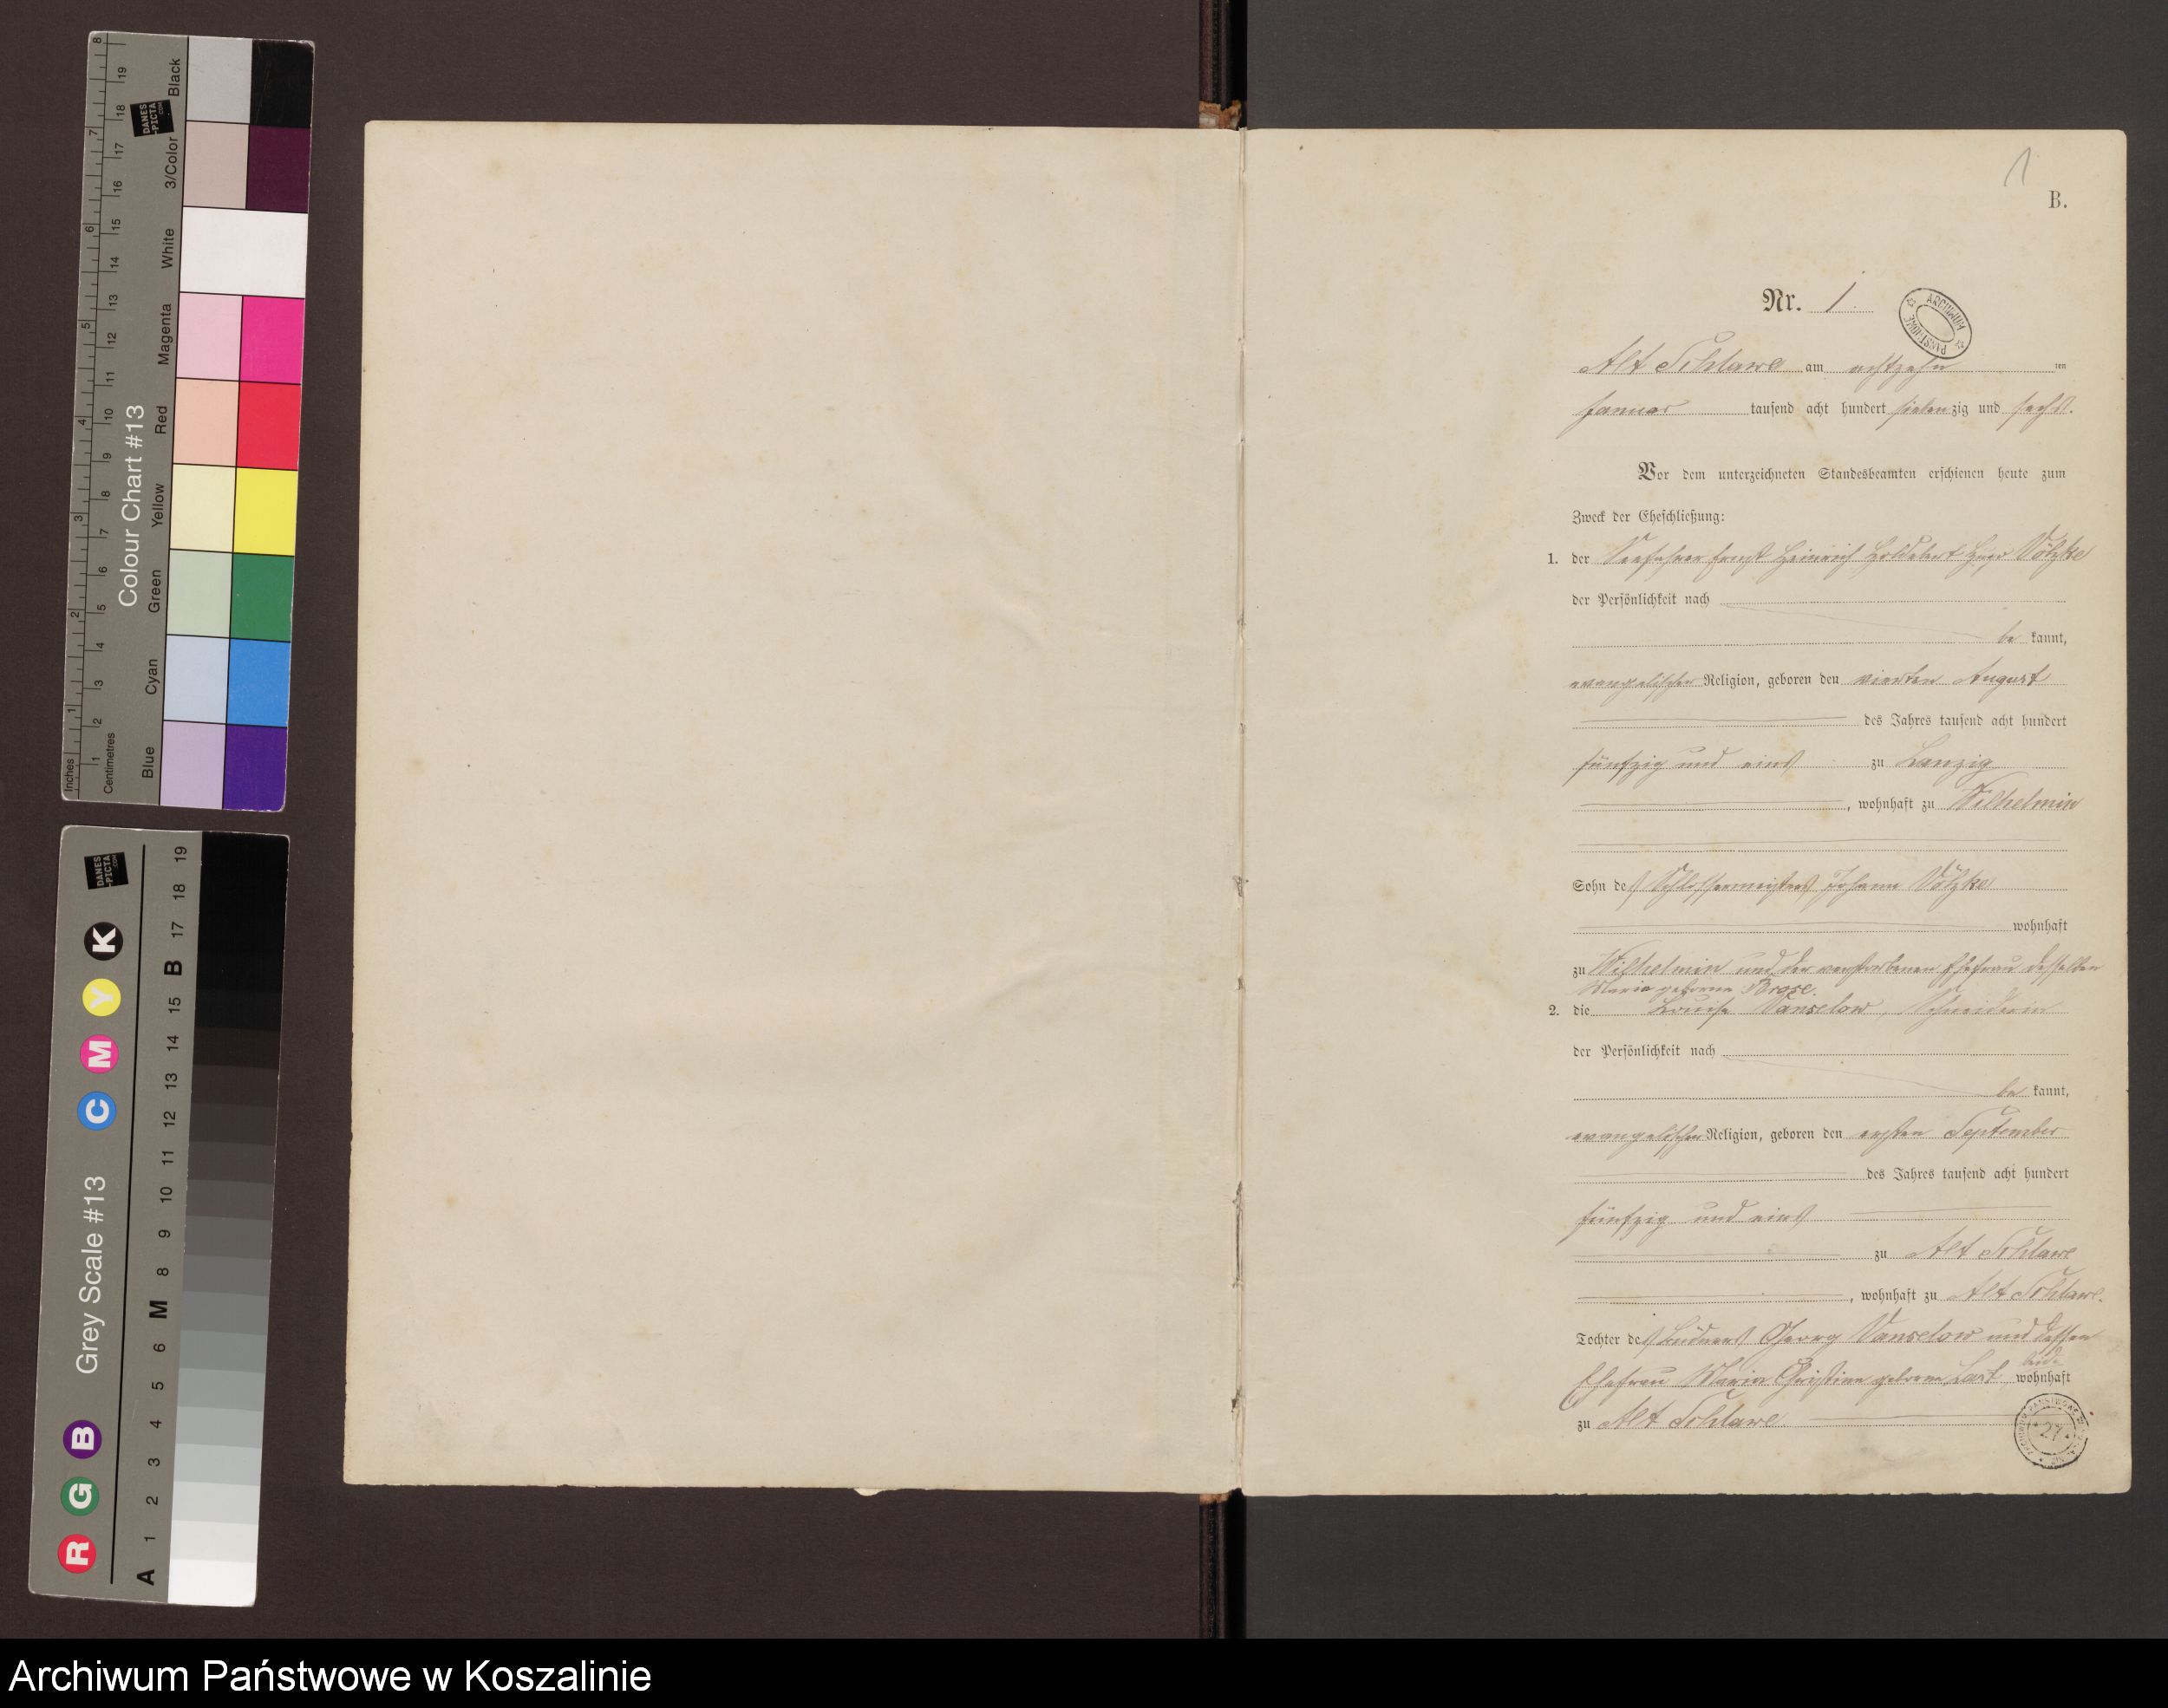 1
B.
Nr. 1.
ARCHIWUM PAŃSTWOWE
Alt Schlawe am achtzehn ten
Januar tausend acht hundert siebenzig und sechs.
Vor dem unterzeichneten Standesbeamten erschienen heute zum
Zweck der Eheschließung:
1. der Ernst Heinrich Hugo Völzke
der Persönlichkeit nach
be kannt,
evangelischer Religion, geboren den vierten August
des Jahres tausend acht hundert
fünfzig und eins zu Lanzig
, wohnhaft zu Wilhelmin
Sohn des Schlossermeisters Johann Völzke
wohnhaft
zu Wilhelmin und der verstorbenen Ehefrau desselben
Marie geborene Brose.
2. die Louise Vanselow, Schneiderin
der Persönlichkeit nach
be kannt,
evangelischer Religion, geboren den ersten September
des Jahres tausend acht hundert
fünfzig und eins
zu Alt Schlawe
, wohnhaft zu Alt Schlawe.
Tochter des Büdners Georg Vanselow und dessen
Ehefrau Marie Christine geborene beide wohnhaft
zu Alt Schlawe.
27
Colour Chart #13
Inches
Centimetres
Blue Cyan Green Yellow Red Magenta White 3/Color Black
DANES-PICTA.COM
1 2 3 4 5 6 7 8
1 2 3 4 5 6 7 8 9 10 11 12 13 14 15 16 17 18 19
Grey Scale #13
DANES-PICTA.COM
R G B C M Y K
A 1 2 3 4 5 6 M 8 9 10 11 12 13 14 15 B 17 18 19
Archiwum Państwowe w Koszalinie